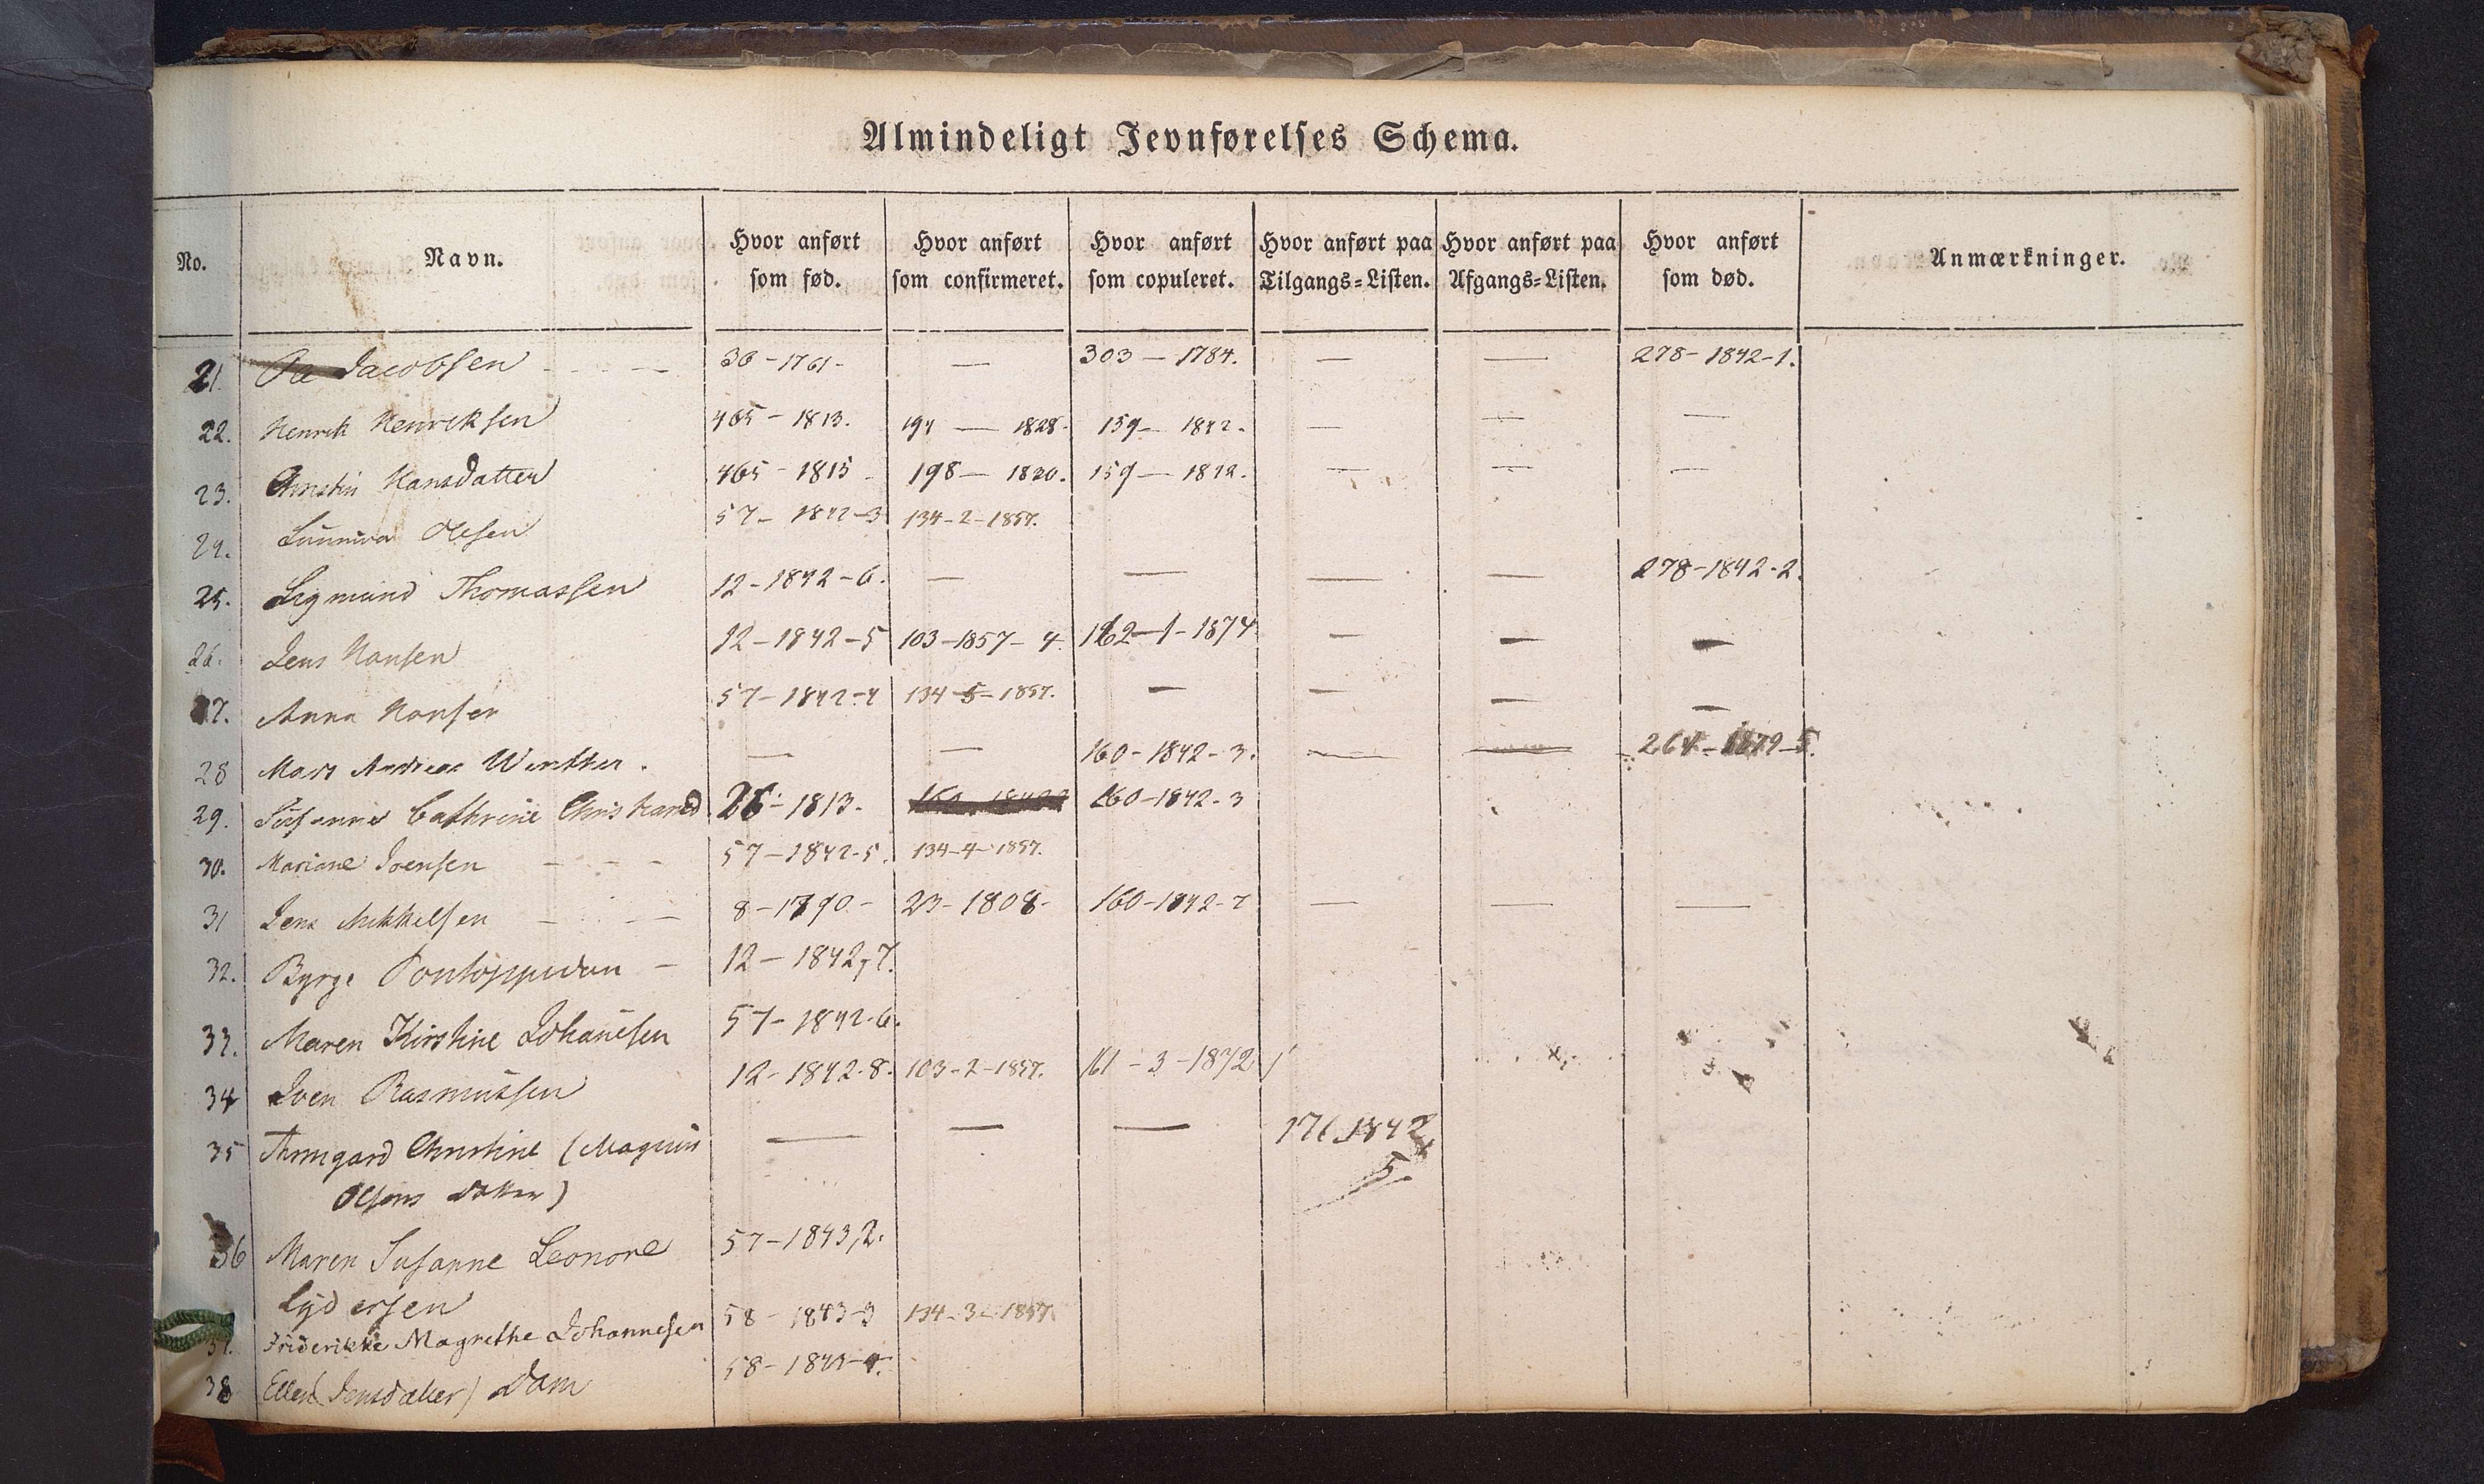 Almindeligt Jevnførelses Schema.
No. Navn. Hvor anført som fød. Hvor anført som confirmeret. Hvor anført som copuleret. Hvor anført paa Tilgangs=Listen. Hvor anført paa Afgangs=Listen. Hvor anført som død. Anmærkninger.
21. Jacobsen 30-1761- — 303-1784. — — 278-1842-1.
22. Henrik Henriksen 465-1813. 194-1828. 159-1842. — — —
23. Christin Hansdatter 465-1815 198-1830. 159-1842. — — —
24. Sunniva Olesen 57-1842-3 134-2-1857.
25. Sigmund Thomassen 12-1842-6. — — — — 278-1842-2.
26. Jens Hansen 12-1842-5 103-1857-4. 162-1-1874 — — —
27. Anna Hansen 57-1842-4 134-5-1857. — — — —
28 Mads Andreas Winther. — — 160-1842-3. — — 264-1879-5.
29. Susanne Cathrine 26-1813. 160-1842-3
30. Mariane Joensen 57-1842-5. 134-4-1857.
31 Jens Mikkelsen 8-1790- 23-1808- 160-1842-7 — — —
32. Byrge Pontoppidan 12-1842,7.
33. Maren Kirstine Johanesen 57-1842-6.
34 Joen Rasmussen 12-1842-8. 103-2-1857. 161-3-1872
35 Armgard Christine (Magnus — — — 176 1842
Olsens datter) 5
36 Maren Susanne Leonore 57-1843,2.
Lydersen
37. Friderikke Magrethe Johannesen 58-1843-3 134-3-1857.
38 Ellen (Jensdatter) Dam 58-1843-4.